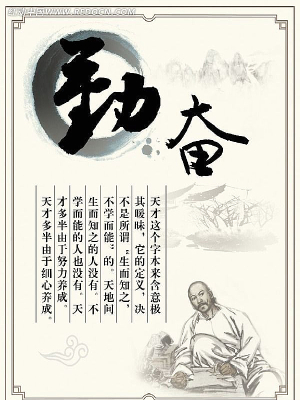 红动中国 WWW.REDOCN.COM
勤奋
天才这个字本来含意极
其暖味，它的定义，决
不是所谓“生而知之，
不学而能”的。天地间
生而知之的人没有。不
学而能的人也没有。天
才多半由于努力养成。
天才多半由于细心养成。